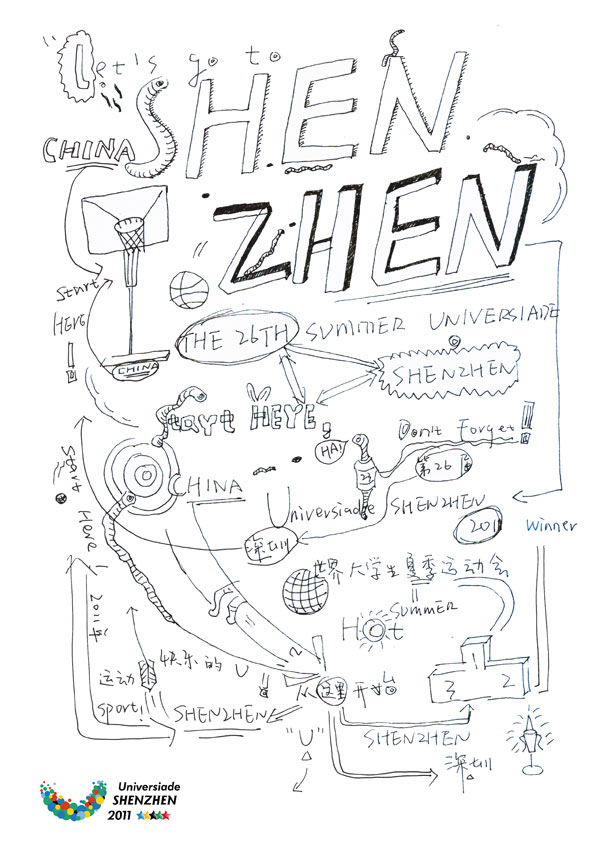 Let's go to
SHEN
CHINA
ZHEN
Start
HERE!
THE 26TH SUMMER UNIVERSIADE
CHINA
SHENZHEN
Start HEYE,
HA!
Don't Forget!
23
第26届
CHINA
Universiade SHENZHEN
2011 Winner
深圳
Start Here!
世界大学生夏季运动会
SUMMER
Hot
2011年
1
3 2
快乐的U
运动
从这里开始
sport!
SHENZHEN
SHENZHEN
"U"
深圳
Universiade
SHENZHEN
2011